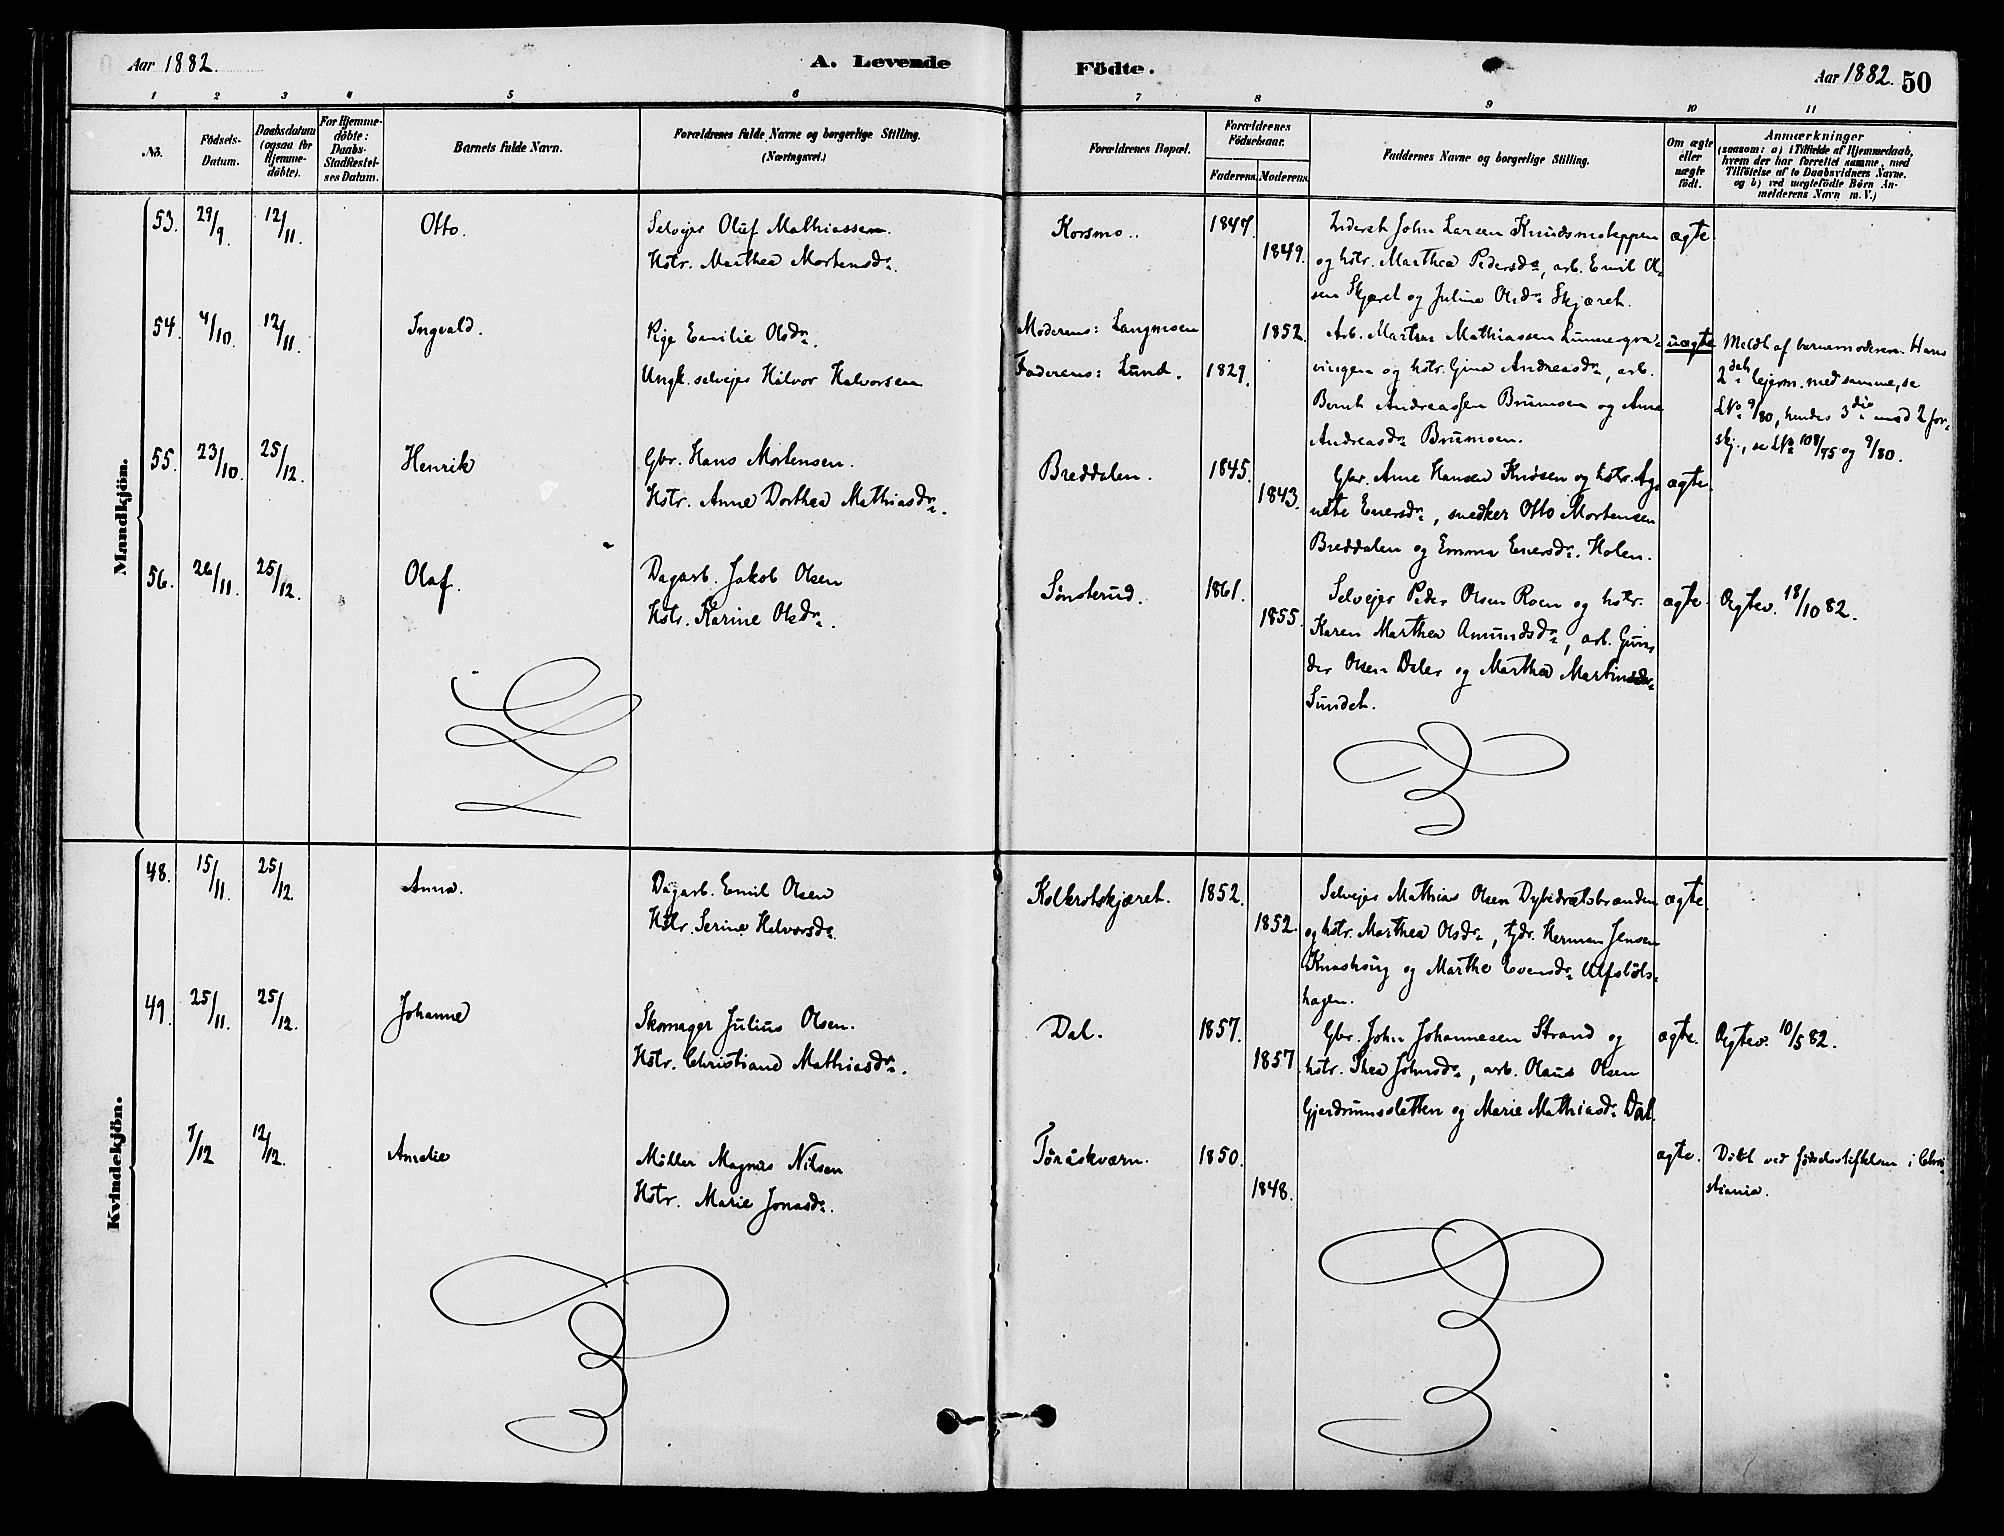 Aar 1882.
A. Levende
Födte.
Aar 1882. 50
1 2 3 4 5 6 7 8 9 10 11
No.
Födsels-
Datum.
Daabsdatum
(ogsaa for
Hjemme-
döbte).
For Hjemme-
döbte:
Daabs-
Stadfæstel-
ses Datum.
Barnets fulde Navn.
Forældrenes fulde Navne og borgerlige Stilling.
(Næringsvei.)
Forældrenes Bopæl.
Forældrenes
Födselsaar.
Faderens. Moderens.
Faddernes Navne og borgerlige Stilling.
Om ægte
eller
uægte
födt.
Anmærkninger
(saasom: a) i Tilfælde af Hjemmedaab,
hvem der har forrettet samme, med
Tilföielse af to Daabsvidners Navne.
og b) ved uægtefödte Börn An-
melderens Navn m. V.)
Mandkjön.
53. 29/9. 12/11. Otto.
Selvejer Oluf Mathiassen.
Hstr. Marthea Mortensdr.
Korsmo.. 1847. 1849.
John Larsen Knudsmoteppen
og hstr. Marthea Pedersdr, arb. Emil Ol-
sen Skjæret og Juline Olsdr Skjæret.
ægte.
54. 4/10. 12/11. Ingvald.
Pige Emilie Olsdr.
Ungk. selvejer Halvor Halvorsen
Moderens: Langmoen
Faderens: Lund.
1829. 1852.
Arb. Martin Mathiassen
og hstr. Gina Andreasdr, arb.
Bernt Andreassen Brumoen og Anne
Andreasdr Brumoen.
uægte
Meldt af barnemoderen. Hans
2det lejerm. med samme, se
LNo 9/80, hendes 3die med 2 for-
skj., se LNo 108/75 og 9/80.
55. 23/10. 25/12. Henrik
Gbr. Hans Mortensen.
Hstr. Anne Dorthea Mathiasdr.
Breddalen. 1845. 1843.
Gbr. Arne Hansen Knosen og hstr. Ag-
nete Enersdr, snedker Otto Mortensen
Breddalen og Emma Enersdr. Holen.
ægte.
56. 26/11. 25/12. Olaf.
Dagarb. Jakob Olsen
Hstr. Karine Olsdr.
Sönsterud. 1861. 1855.
Selvejer Peder Olsen Roen og hstr.
Karen Marthea Amundsdr, arb. Gun-
der Olsen Daler og Marthea Martinsdr
Sundet.
ægte. Ægtev. 18/10 82.
Kvindekjön.
48. 15/11. 25/12. Anna.
Dagarb. Emil Olsen
Hstr. Serine Halvorsdr.
Kolkrotskjæret. 1852. 1852.
Selvejer Mathias Olsen Dybedrætsbraaden
og hstr. Marthea Olsdr, fdr. Herman Jensen
Knashaug og Marthe Evensdr Ulfsböls-
hagen.
ægte.
49. 25/11. 25/12. Johanne
Skomager Julius Olsen.
Hstr. Christiane Mathiasdr.
Dal. 1857. 1857
Gbr. John Johannesen Strand og
hstr. Thea Johnsdr, arb. Olaus Olsen
Gjerdrumsslatten og Marie Mathiasdr Dal.
ægte. Ægtev. 10/5 82.
7/12 12/12. Amelie
Möller Magnus Nilsen
Hstr. Marie Jonasdr.
Töråskværn. 1850. 1848.
ægte.
Döbt ved födselsstiftelsen i Chri-
stiania.